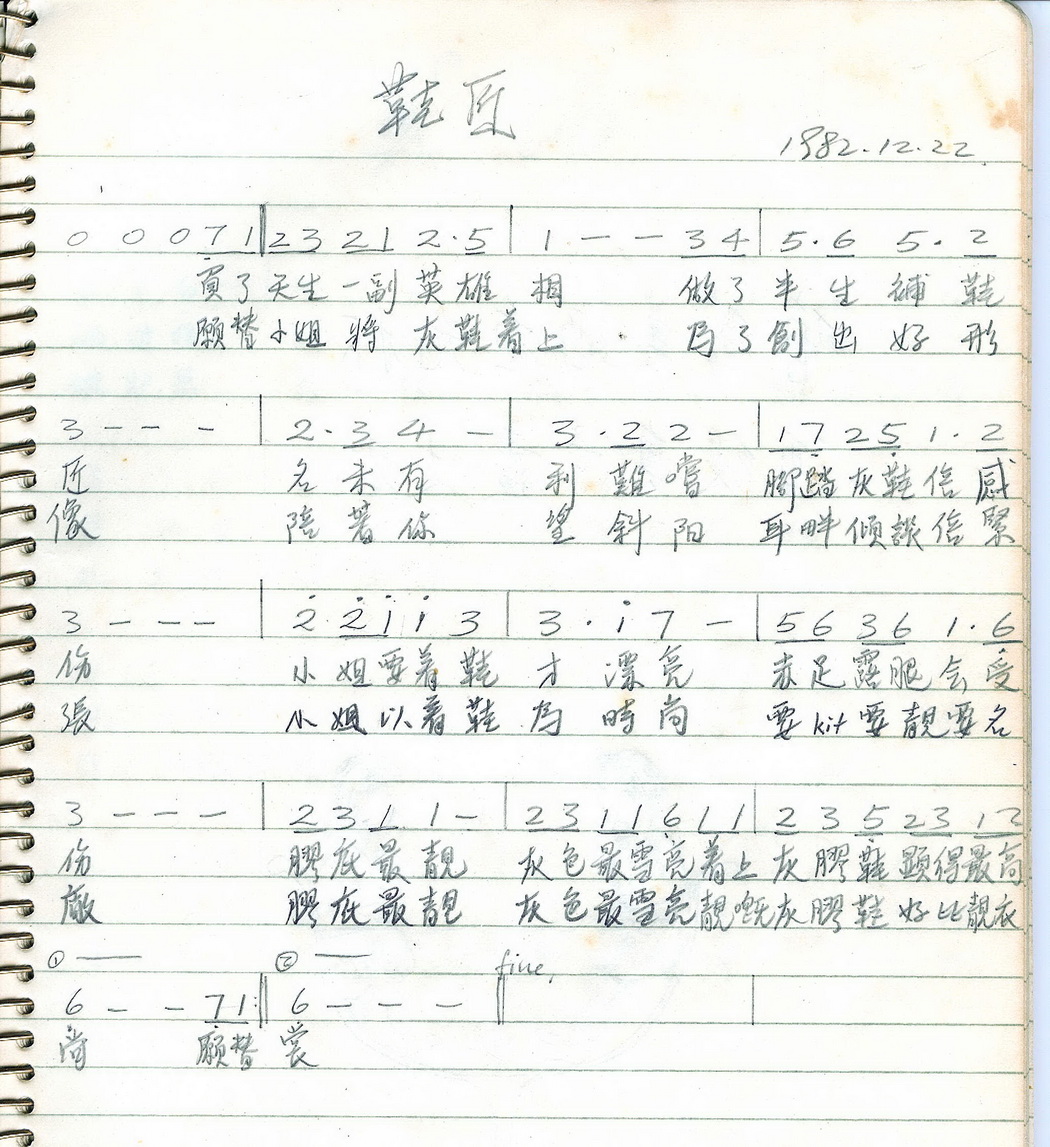 鞋匠
1982.12.22.
0 0 0 7 1 | 2 3 2 1 2 · 5 | 1 — — 3 4 | 5 · 6 5 · 2
買了天生一副英雄相 做了半生補鞋
願替小姐將灰鞋着上 為了創出好形
3 — — — | 2 · 3 4 — | 3 · 2 2 — | 1 7 2 5 1 · 2
匠 名未有 利難嚐 腳踏灰鞋倍感
像 陪著你 望斜阳 耳畔傾談倍緊
3 — — — | 2 · 2 1 1 3 | 3 · 1 7 — | 5 6 3 6 1 · 6
伤 小姐要着鞋才漂亮 赤足露腿会受
張 小姐以着鞋為時尚 要kit要靚要名
3 — — — | 2 3 1 1 — | 2 3 1 1 6 1 1 | 2 3 5 2 3 1 2
伤 膠底最靚 灰色最雪亮着上灰膠鞋顯得最高
廠 膠底最靚 灰色最雪亮靚嘅灰膠鞋好比靚衣
① — ② — fine,
6 — — 7 1 :|| 6 — — — ||
尚 願替裳